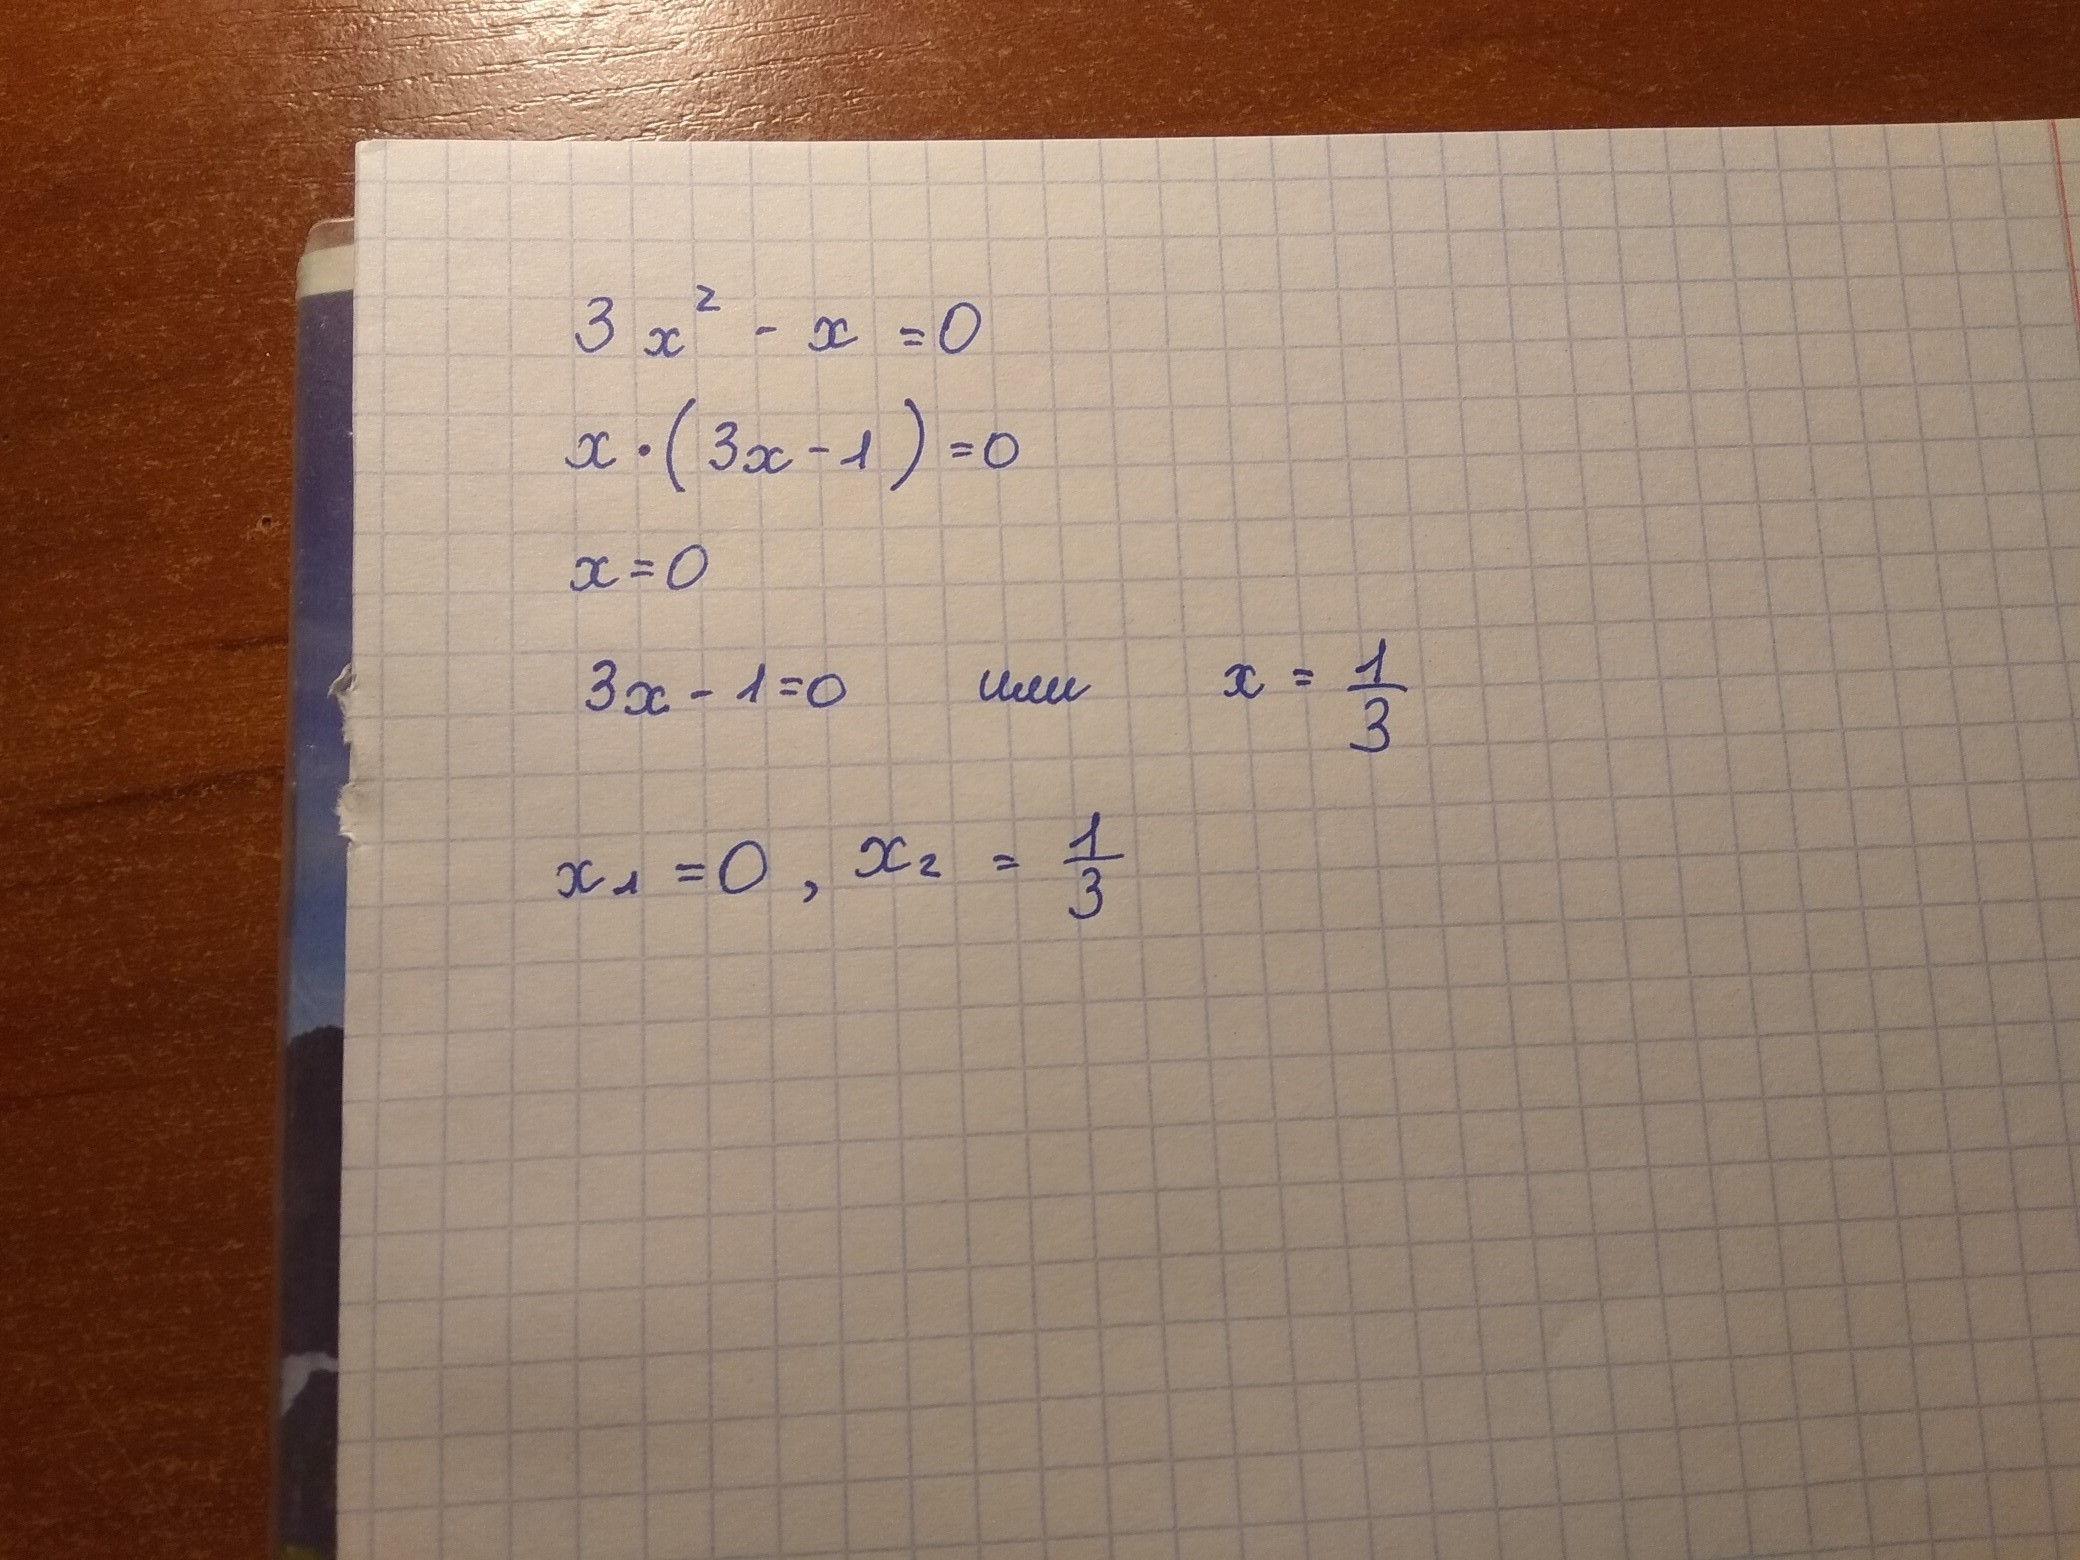 3x² - x = 0
x·(3x-1)=0
x=0
3x-1=0 или x = 1/3
x₁ =0, x₂ = 1/3